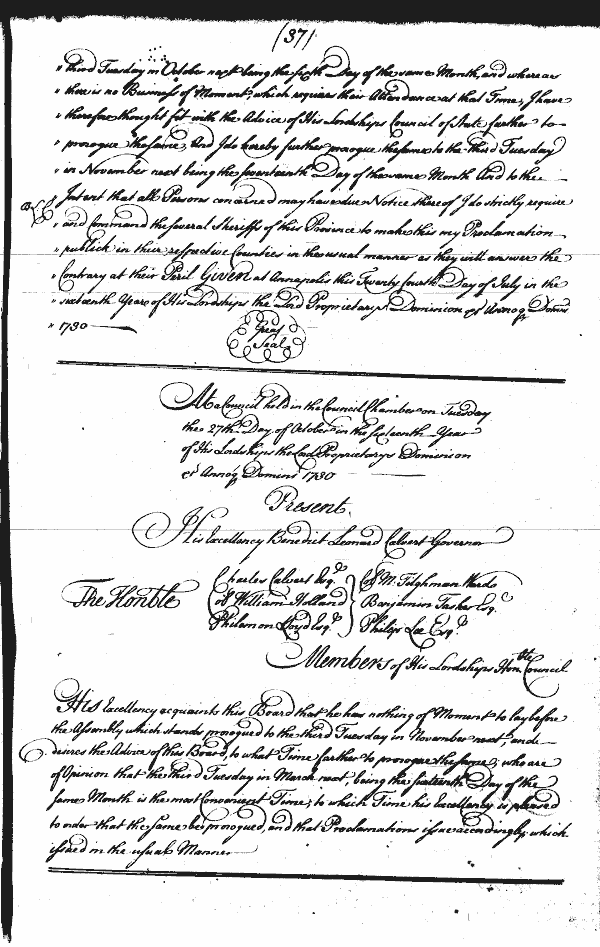 (37)
" third Tuesday in October next being the sixth Day of the same Month, and whereas
" there is no Business of Moment, which requires their Attendance at that Time, I have
" therefore thought fit with the Advice of His Lordships Council of State further to
" prorogue the same, And I do hereby further prorogue the same to the third Tuesday
" in November next being the seventeenth Day of the same Month And to the
" Intent that all Persons concerned may have due Notice thereof I do strictly require
" and Command the several Sheriffs of this Province to make this my Proclamation
" publick in their respective Counties in the usual manner as they will answer the
" Contrary at their Peril Given at Annapolis this Twenty fourth Day of July in the
" sixteenth Year of His Lordships the Lord Proprietarys Dominion &c Annoq Domini
" 1730
Great
Seal
At a Council held in the Council Chamber on Tuesday
the 27th Day of October in the sixteenth Year
of His Lordships the Lord Proprietarys Dominion
&c Annoq Domini 1730
Present
His Excellency Benedict Leonard Calvert Governor
Charles Calvert Esqr. Col M. Tilghman Wardo
The Honble Col William Holland Benjamin Tasker Esqr.
Philemon Lloyd Esqr. Philip Lee Esqr.
Members of His Lordships Honble Council
His Excellency acquaints this Board that he has nothing of Moment to lay before
the Assembly which stands prorogued to the third Tuesday in November next, and
desires the Advice of this Board, to what Time farther to prorogue the same; who are
of Opinion that the third Tuesday in March next, being the sixteenth Day of the
same Month is the most Convenient Time; to which Time his Excellency is pleased
to order that the same be prorogued, and that Proclamations issue accordingly which
issued in the usual Manner